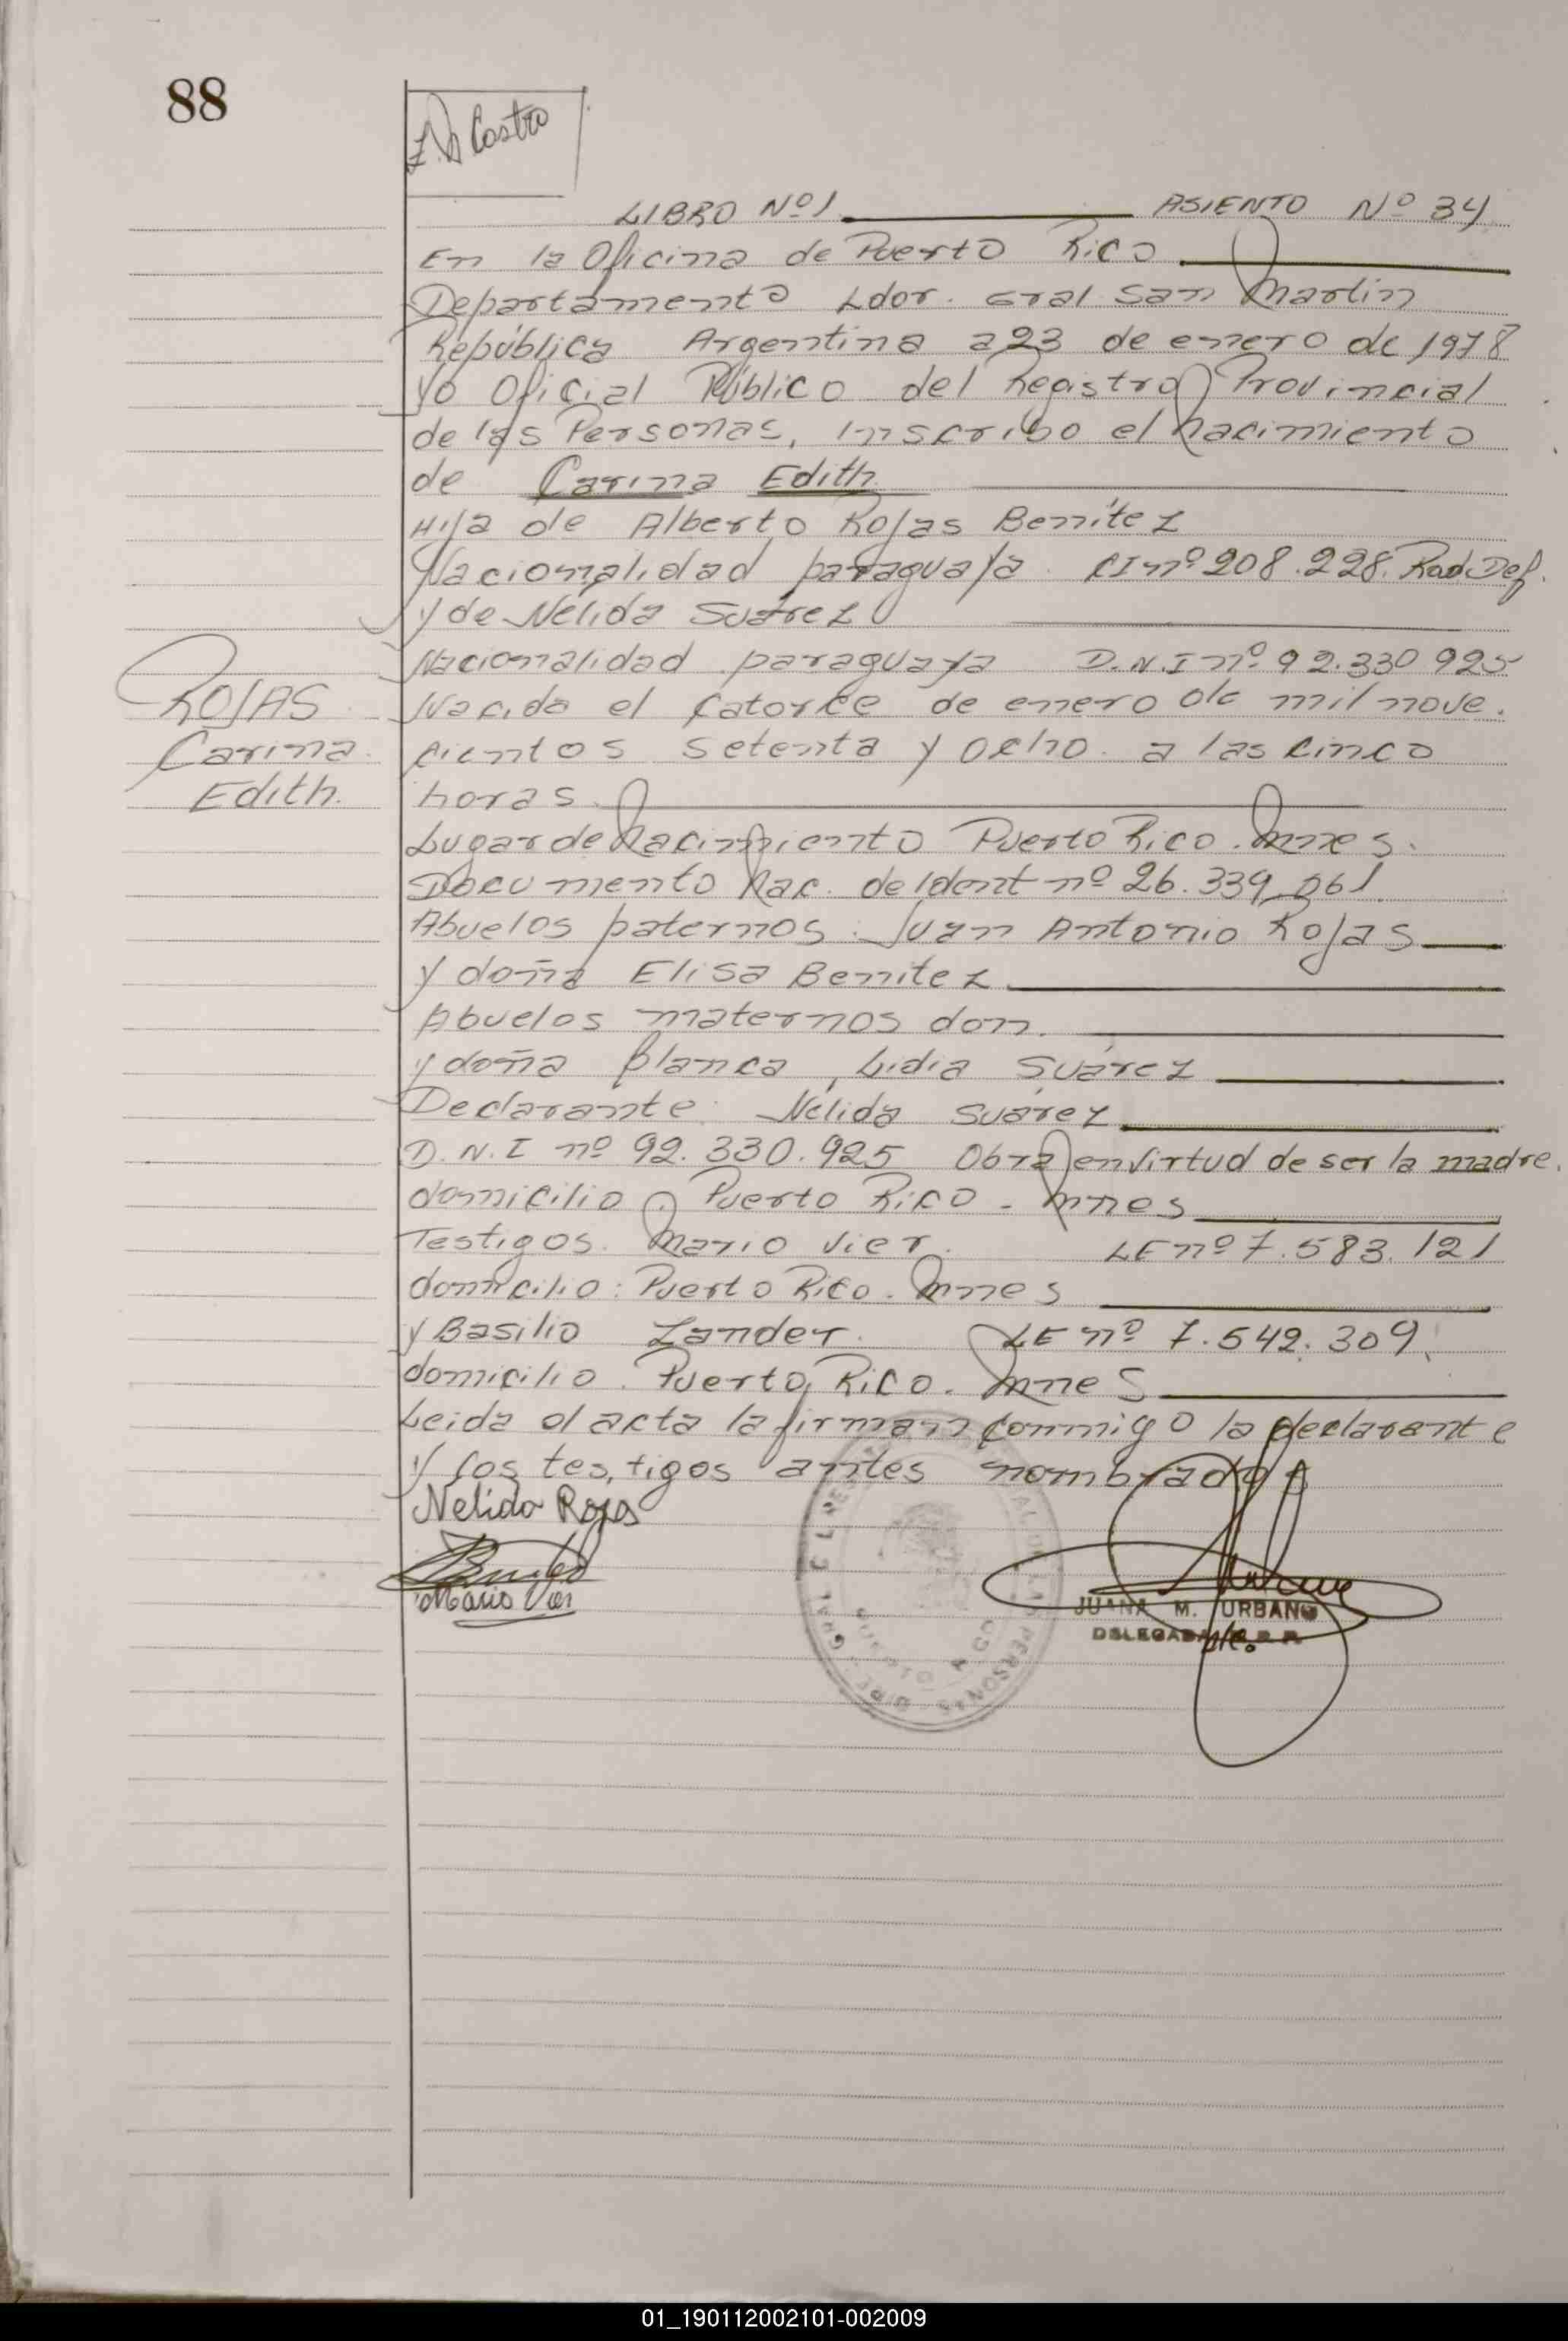 88
Castro
LIBRO Nº1 ASIENTO Nº 34
En la Oficina de Puerto Rico
Departamento Ldor. Gral San Martin
República Argentina a 23 de enero de 1978
Yo Oficial Público del Registro Provincial
de las Personas, Inscribo el nacimiento
de Carina Edith
Hija de Alberto Rojas Benítez
Nacionalidad paraguaya CI nº 208.228. Rad Def.
y de Nélida Suárez
Nacionalidad paraguaya D.N.I nº 92.330 925
Nacida el catorce de enero de mil nove.
cientos setenta y ocho. a las cinco
horas.
ROJAS
Carina
Edith.
Lugar de Nacimiento Puerto Rico. Mnes.
Documento Nac. de Ident nº 26.339,061
Abuelos paternos: Juan Antonio Rojas
y doña Elisa Benitez
Abuelos maternos don.
y doña Blanca Lidia Suárez
Declarante: Nélida Suárez
D.N.I nº 92.330.925 Obra en virtud de ser la madre.
domicilio. Puerto Rico - Mnes
Testigos. Mario Vier. LE nº 7.583.121
domicilio: Puerto Rico. Mnes
y Basilio Zander. LE nº 7.542.309.
domicilio. Puerto Rico. Mnes
Leida el acta la firman conmigo la declarante
y los testigos antes nombrados
Nelida Rojas
Mario Vier
JUANA M. URBANO
DELEGADA R. P. P.
PUERTO RICO
01_190112002101-002009